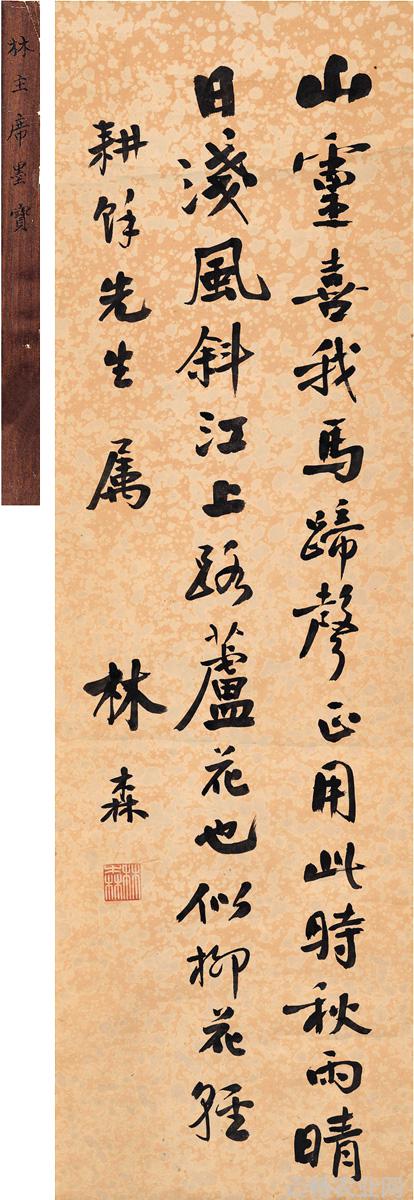 山靈喜我馬蹄聲正用此時秋雨晴
日淺風斜江上路蘆花也似柳花輕
耕馀先生属
林森
林森
林主席墨寶